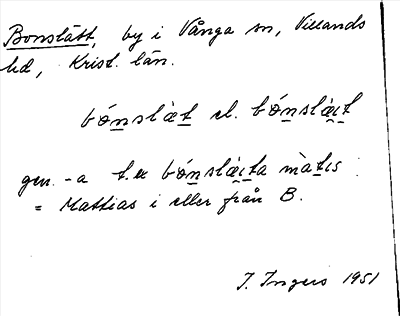 Bonslätt, by i Vånga sn, Villands
hd, Krist. län.
bónslæ̀t el. bónslæ̀i̯t
gen. -a t. ex bónslæ̀i̯ta màtis
= Mattias i eller från B.
I. Ingers 1951